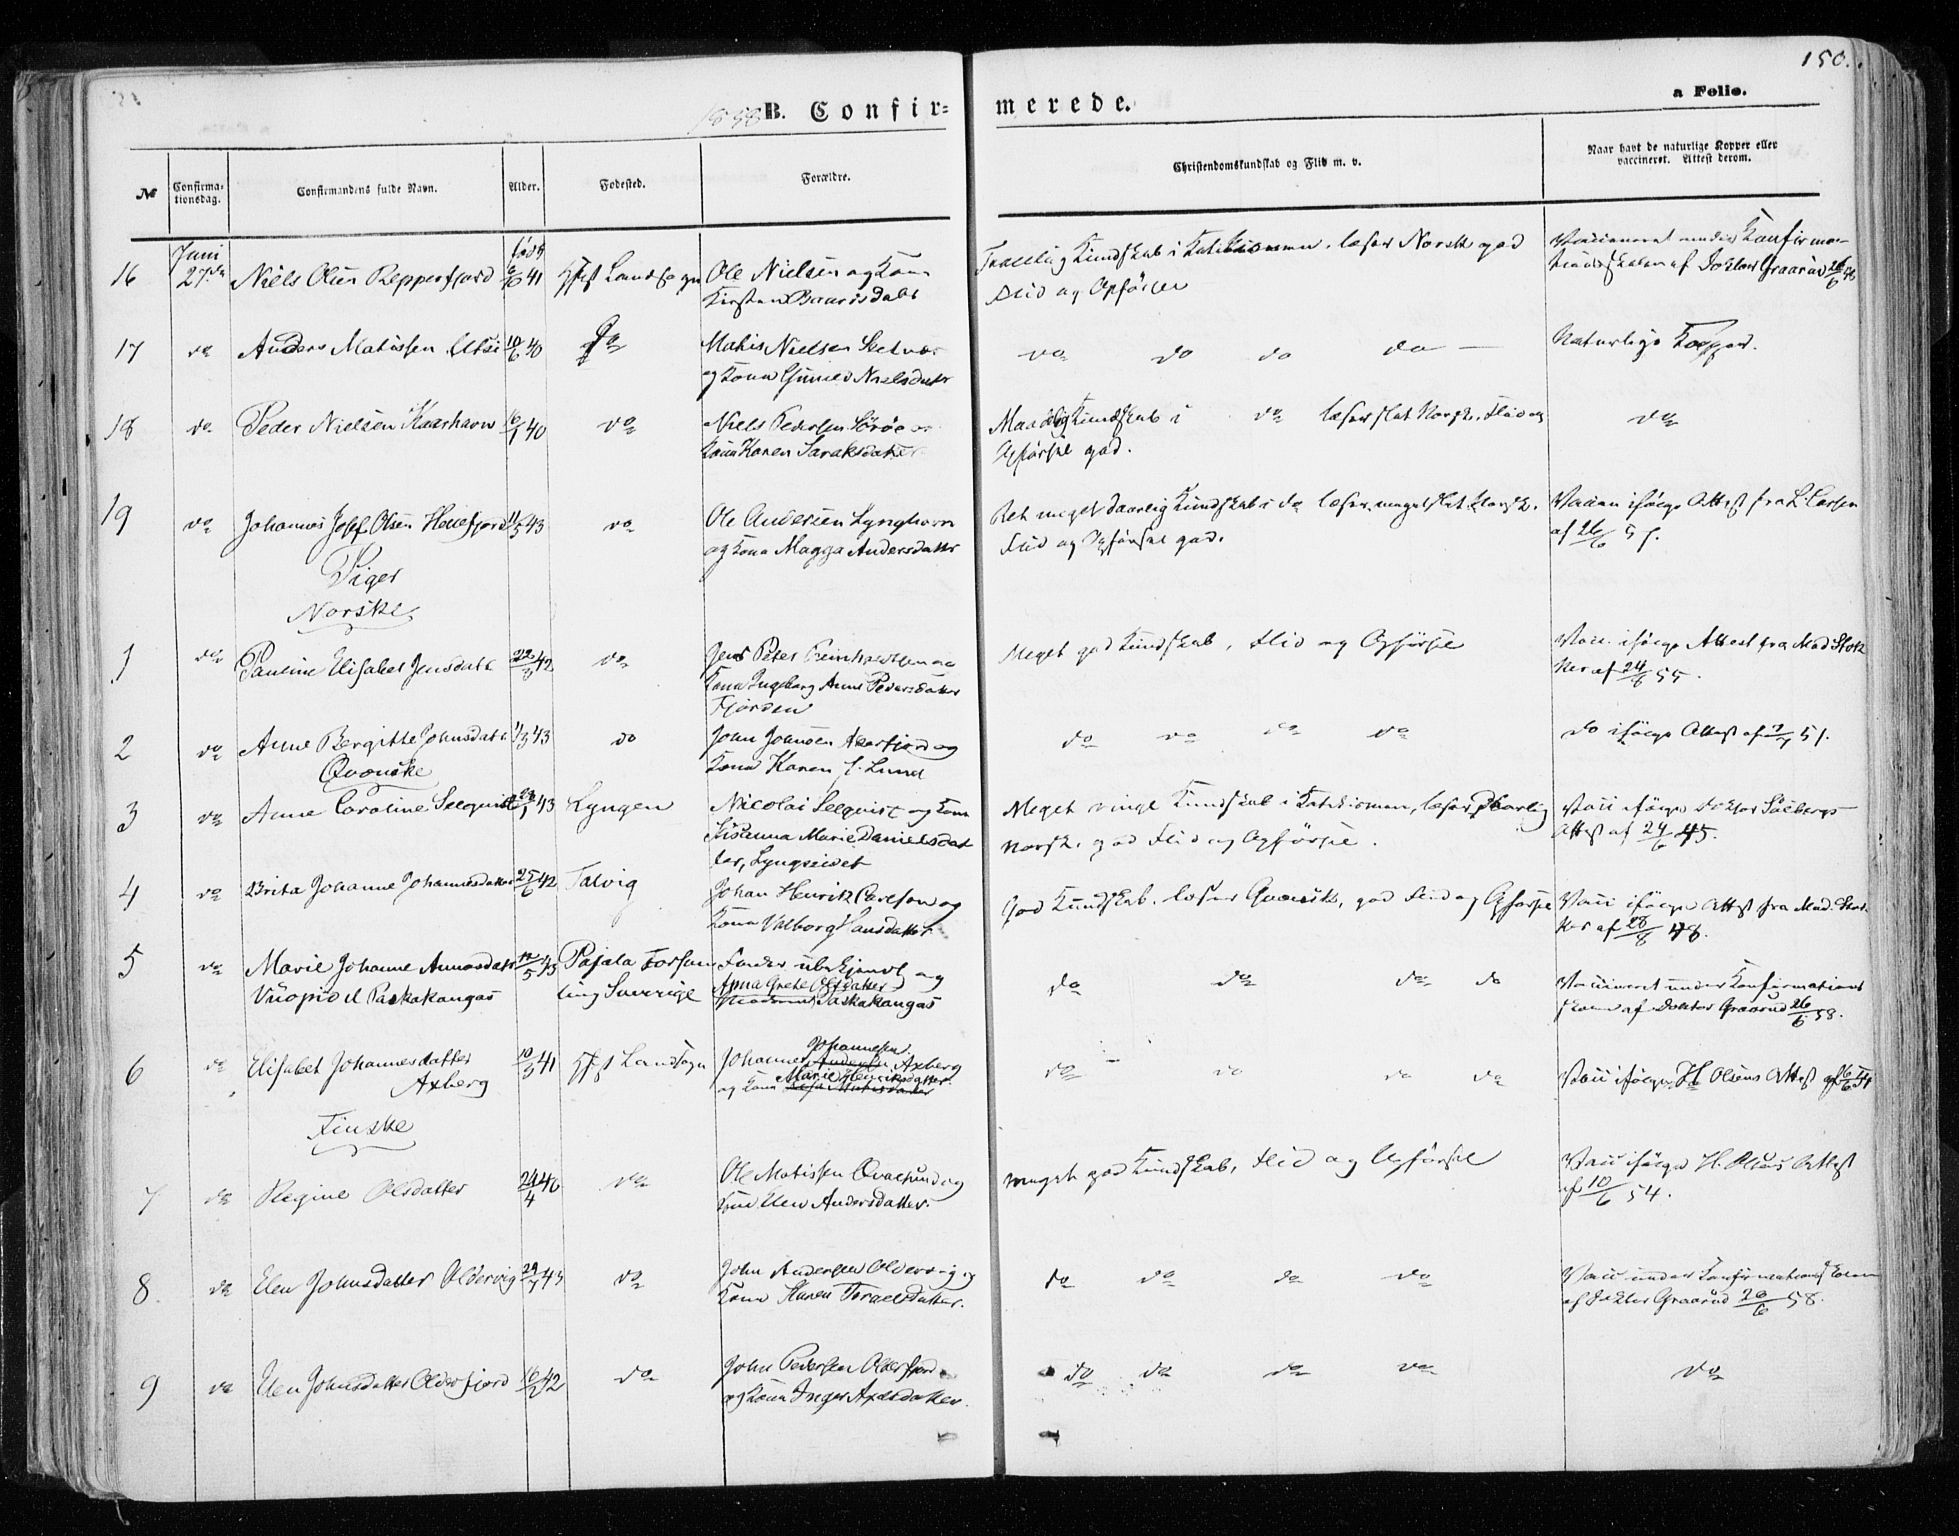 150.
a Folio.
1858 B. Confirmerede.
No Confirmationsdag. Confirmandens fulde Navn. Alder. Fødested. Forældre. Christendomskundskab og Flid m. v. Naar havt de naturlige Kopper eller vaccineret. Attest derom.
Juni født
16 27de Niels Olsen Repperfjord 41 Hfest Landsogn Ole Nielsen og Kone Kundskab i læser Norsk god Vaccineret under Konfirma-
Kirsten Flid og Opførsel af Doktor Graarud 26/6 58
17 do Anders Mathissen Utsi 10/6 40 do Mathis Nielsen
do do do do Naturlige Kopper.
og Kone Gunild Nielsdatter
18 do Peder Nielsen Kaarhavn 16/1 40 do Niels Pedersen Sørøe og Maadelig Kundskab i do læser slet Norsk. Flid og do
Kone Karen Saraksdatter Opførsel god.
19 do Johannes Josef Olsen 11/5 43 do Ole Andersen Lynghavn Ret meget daarlig Kundskab i do læser meget slet Norsk. Vaccin ifølge Attest fra L. Larsen
og Kone Magga Andersdatter Flid og Opførsel god. af 26/6 57.
Piger
Norske
1 do Pauline Elisabet Jensdatt 22/3 42 do Jens Peter Reinholdtsen og Meget god Kundskab, Flid og Opførsel Vacc. ifølge Attest fra Mad Stok
Kone Ingeborg Anne Pedersdatter ker af 24/6 55.
Fjorden
2 do Anne Bergitte Johnsdatt 11/3 43 do John Johnsen Akerfjord og do do do do do ifølge Attest af 57.
Kone Karen J. Lund
Qvænske
3 do Anne Caroline Seeqvist 23/1 43 Lyngen Nicolai Seeqvist og Kone Meget ringe Kundskab i Katekismen, læser daarlig Vacc ifølge Doktor Saebergs
Susanna Marie Danielsdat Norsk, god Flid og Opførsel. Attest af 24/6 45.
ter, Lyngseidet
4 do Brita Johanne Johannesdatter 25/6 42 Talvig Johan Henrik Carlson og God Kundskab. læser Qvænsk, god Flid og Opførsel Vacc ifølge Attest fra Mad. Stok
Kone Valborg Hansdatter ker af 28/8 48.
5 do Marie Johanne Annasdatter 10/5 43 Pajala Forsam Fader ubekjendt og do do do do Vaccineret under Konfirmations
Vuopio el Paskakangas ling Sverige Anna Grete Olsdatter af Doktor Graarud 26/6 58.
Paskakangas
6 do Elisabet Johannesdatter 10/3 41 Hfest Landsogn Johannes Johannesen Axberg do do do do Vacc ifølge H Olsens Attest af 6/6 54
Axberg og Kone Marie Henriksdatter
Finske
7 do Regine Olsdatter 24/4 40 do Ole Matissen Qvalsund og meget god Kundskab, Flid og Opførsel Vacc ifølge H. Olsens Attest
Kone Elen Andersdatter af 10/6 54.
8. do Elen Johnsdatter Oldervig 29/7 43 do John Andersen Oldervig og do do do do Vacc under Konfirmations
Kone Karen Toraelsdatter. af Doktor Graarud 26/6 58.
9 do Elen Johnsdatter Olderfjord 16/2 42 do John Pedersen Olderfjord do do do do do
og Kone Inger Axelsdatter.